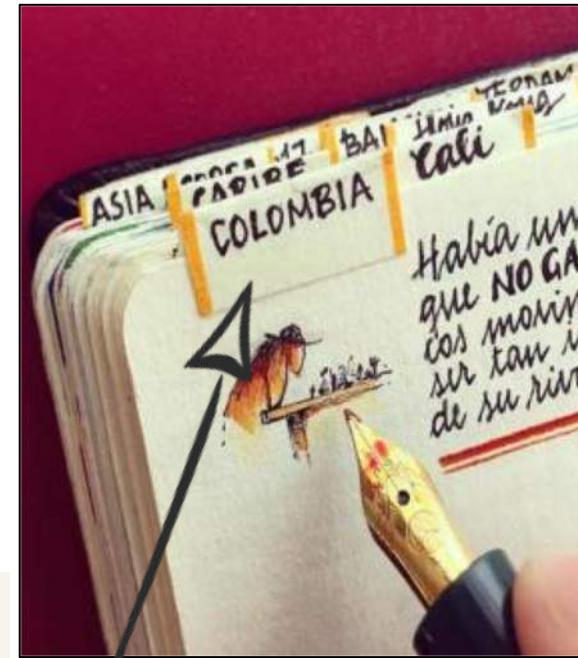 ASIA
CARIBE
BAL
COLOMBIA
Cali
Había un
que NO GA
cos movim
ser tan i
de su riv